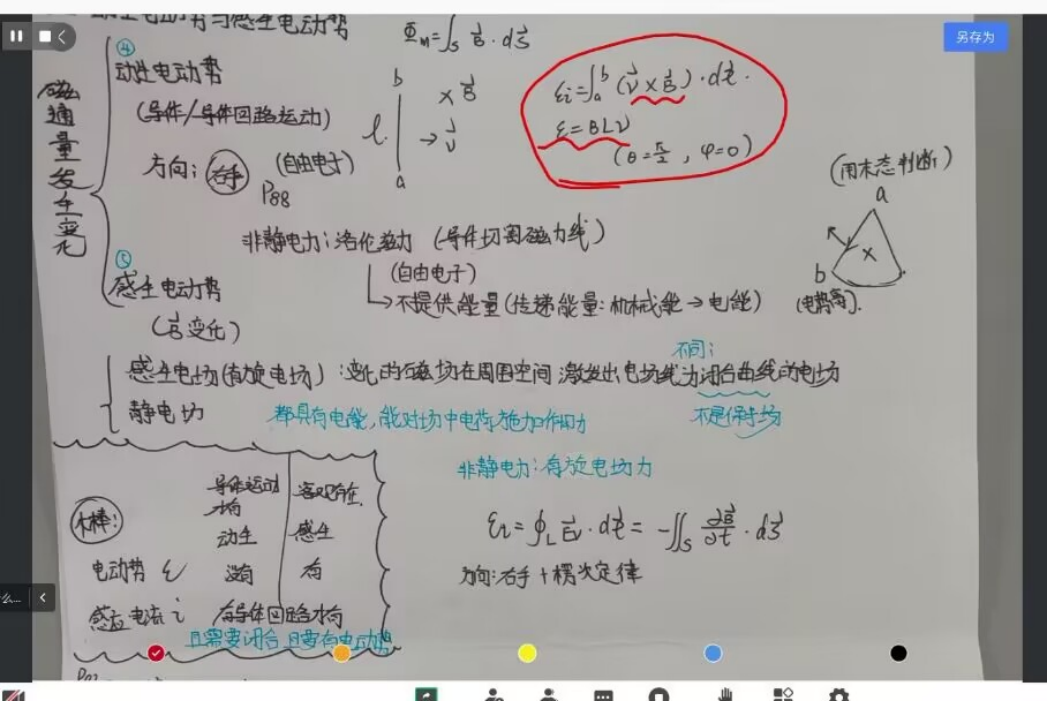 动生电动势与感生电动势 Φm=∫s B⃗·dS⃗
磁通量发生变化
④
动生电动势
(导体/导体回路运动)
方向：右手 (自由电子)
P88
b
l
a
× B⃗
→ v⃗
εi=∫ₐᵇ (v⃗×B⃗)·dl⃗.
ε=BLv
(θ=π/2, φ=0)
另存为
(用末态判断)
a
×
b
(电势高).
非静电力：洛伦兹力 (导体切割磁力线)
(自由电子)
→不提供能量(传递能量：机械能→电能)
⑤
感生电动势
(B⃗变化)
不同：
感生电场(有旋电场)：变化的磁场在周围空间激发出电场线为闭合曲线的电场
静电场 都具有电能，能对场中电荷施加作用力 不是保守场
非静电力：有旋电场力
εi=∮L E⃗v·dl⃗=-∬s ∂B⃗/∂t·dS⃗
方向：右手+楞次定律
导体运动 客观存在
才有
木棒：
动生 感生
电动势 εi 没有 有
感应电流 i 有导体回路才有
且需要闭合 且要有电动势